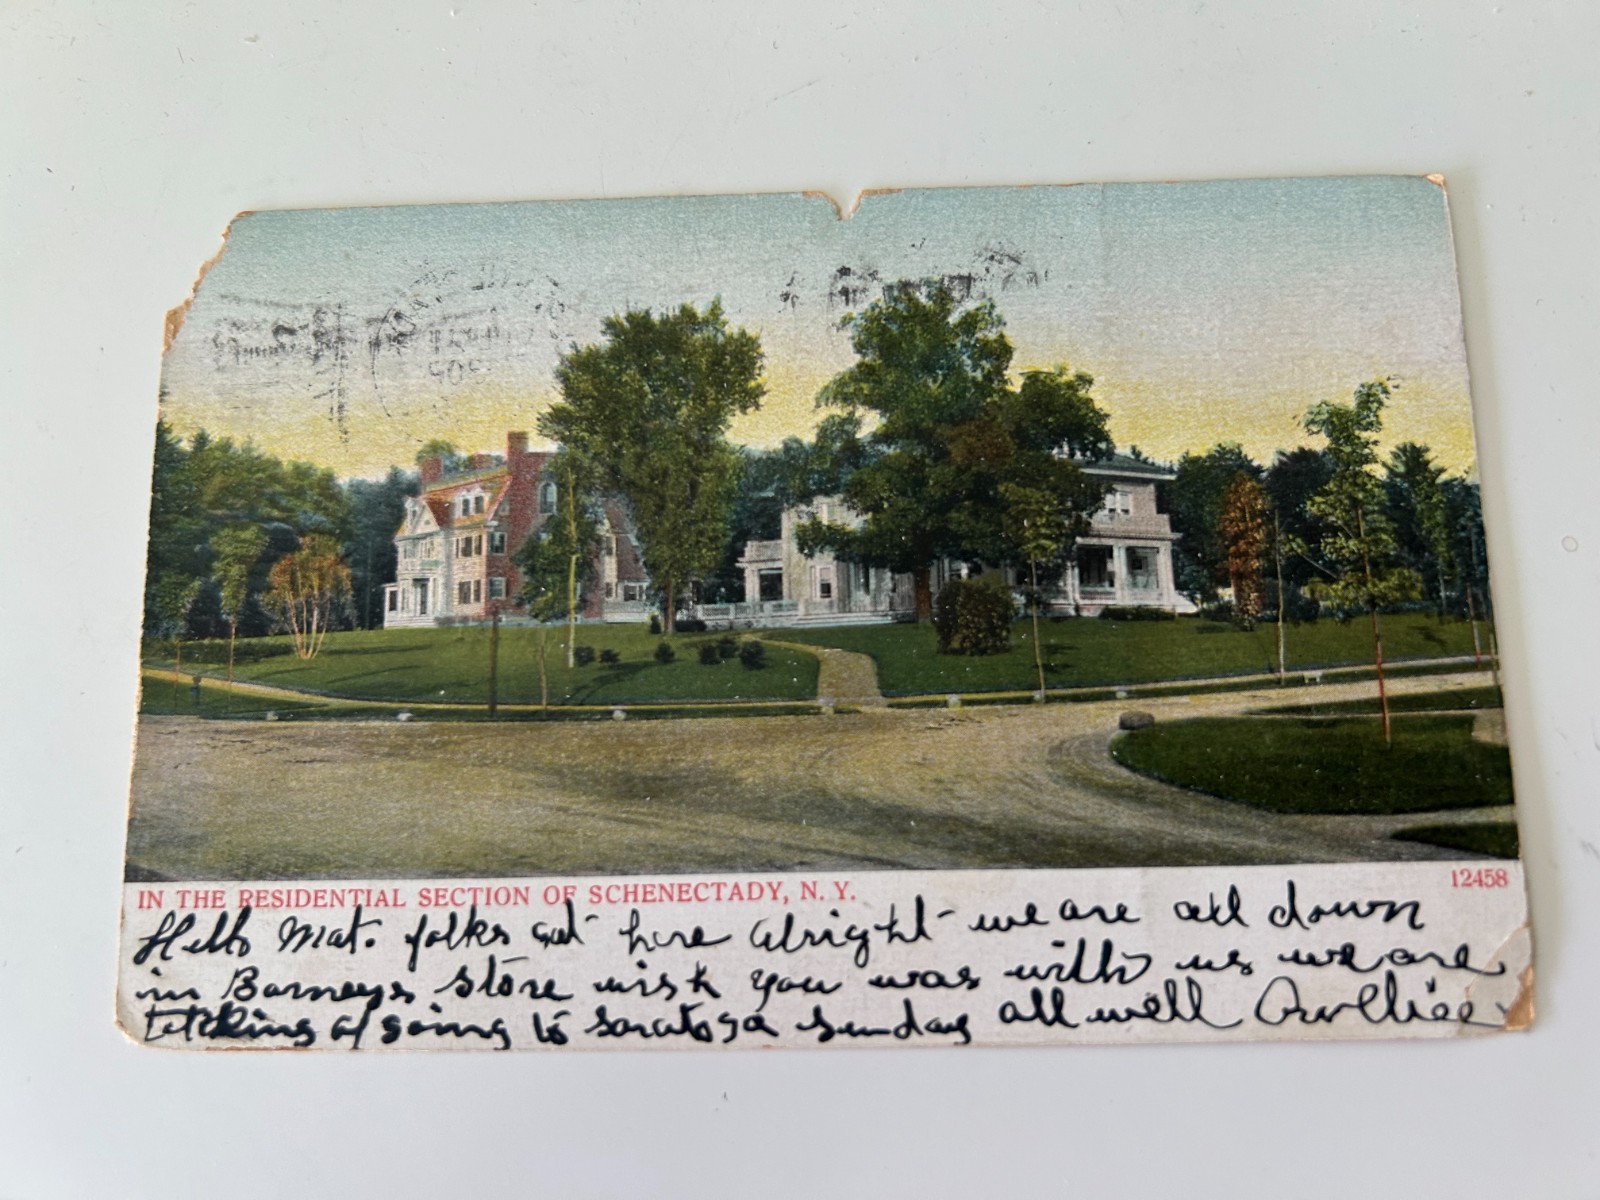 IN THE RESIDENTIAL SECTION OF SCHENECTADY, N. Y.
12458
Hello Mat. folks got here alright we are all down
in Barneys Store wish you was with us we are
talking of going to Saratoga Sunday all well